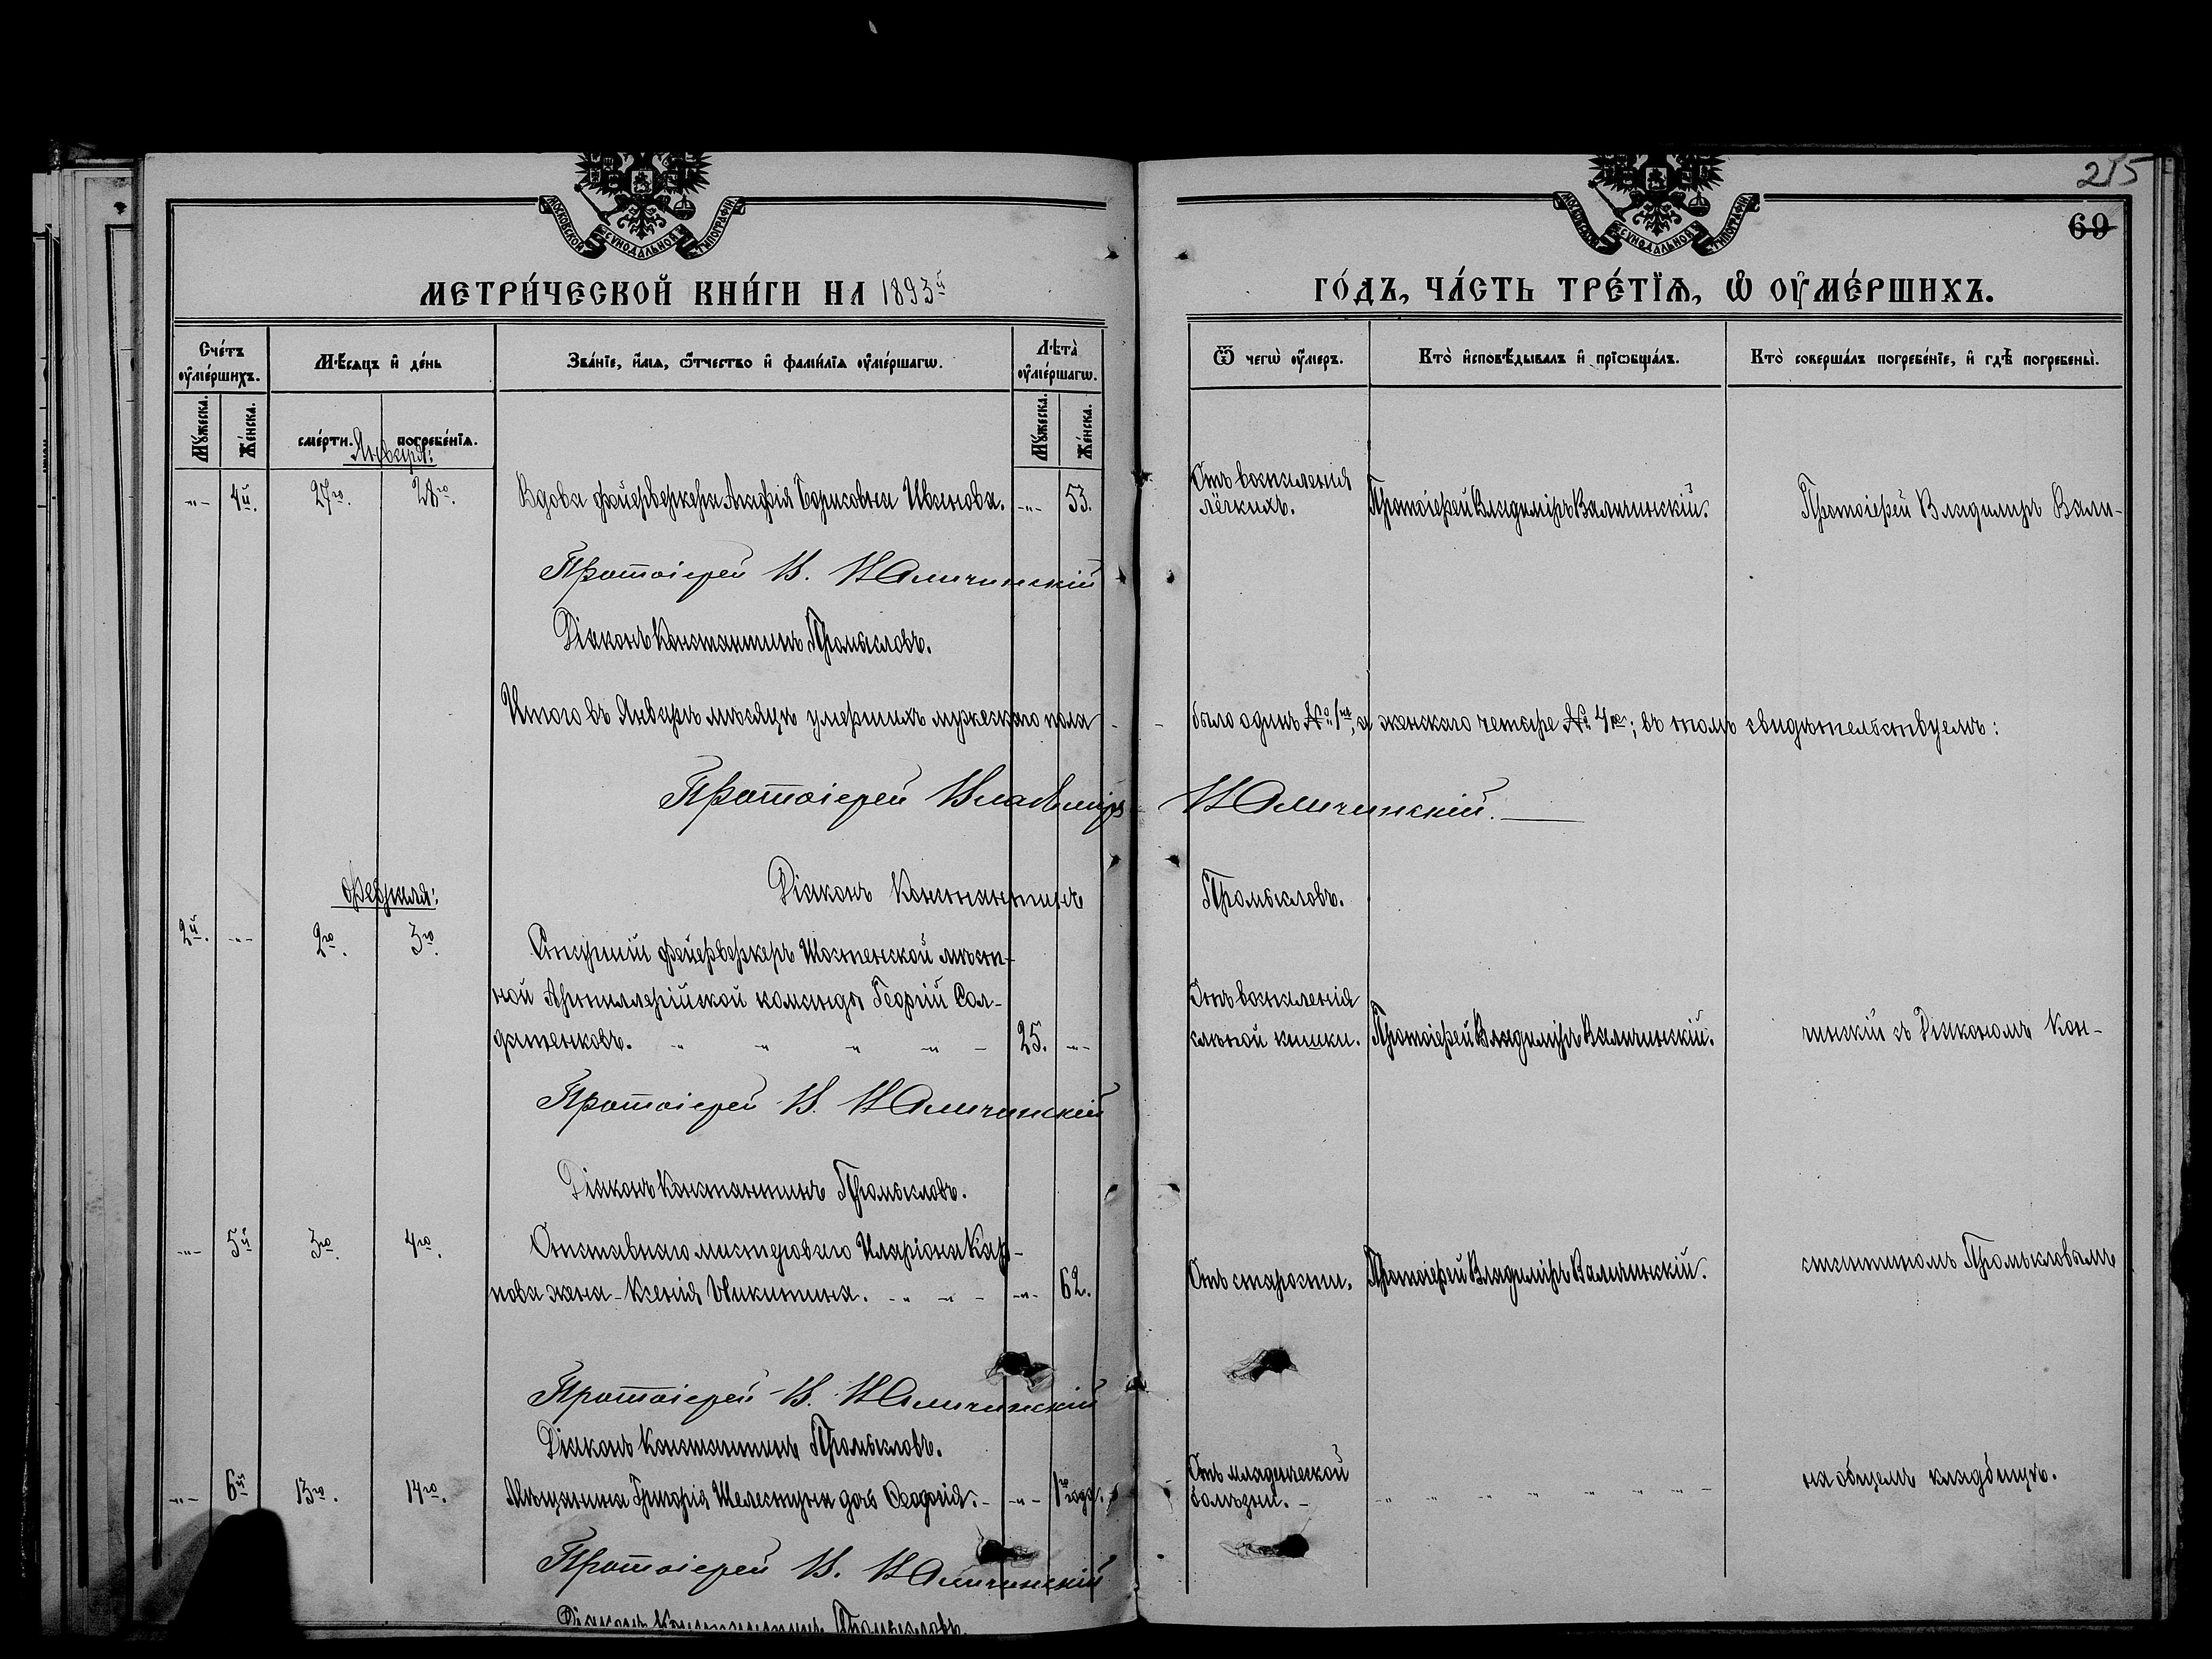 215
69
МОСКОВСКОЙ СѴНОДАЛЬНОЙ ТИПОГРАФІИ
МОСКОВСКОЙ СѴНОДАЛЬНОЙ ТИПОГРАФІИ
МЕТРИ́ЧЕСКОЙ КНИ́ГИ НА 1893й
ГО́ДЪ, ЧА́СТЬ ТРЕ́ТІѦ, Ѡ҆ ОУ҆МЕ́РШИХЪ.
Сче́тъ оу҆ме́ршихъ.
Мѣ́сяцъ и҆ де́нь
Зва́нїе, и҆́мѧ, ѻ҆́тчество и҆ фами́лїѧ оу҆ме́ршагѡ.
Лѣта̀ оу҆ме́ршагѡ.
Ѿ чегѡ̀ оу҆́меръ.
Кто̀ и҆сповѣ́дывалъ и҆ прїѡбща́лъ.
Кто̀ соверша́лъ погребе́нїе, и҆ гдѣ̀ погребены̀.
Мꙋ́жеска.
Же́нска.
сме́рти.
погребе́нїѧ.
Мꙋ́жеска.
Же́нска.
Января:
-"- 4й. 27го. 28го. Вдова фейерверкера Агафія Борисовна Иванова. -"- 53.
Отъ воспаленія
лёгкихъ.
Протоіерей Владиміръ Валичинскій.
Протоіерей Владиміръ Вали-
Протоіерей В. Валичинскій
Діаконъ Константинъ Промысловъ.
Итого въ Январѣ мѣсяцѣ умершихъ мужескаго пола - - было одинъ № 1й, а женскаго четыре № 4ре; въ томъ свидѣтельствуемъ:
Протоіерей Владиміръ Валичинскій.
Діаконъ Константинъ Промысловъ.
Февраля:
2й. -"- 2го. 3го. Старшій фейерверкеръ Шостенской мѣст-
ной Артиллерійской команды Георгій Сол-
датенковъ. 25. -"-
Отъ воспаленія
слѣпой кишки.
Протоіерей Владиміръ Валичинскій.
чинскій съ Діакономъ Кон-
Протоіерей В. Валичинскій
Діаконъ Константинъ Промысловъ.
-"- 5й 3го. 4го. Отставнаго мастероваго Иларіона Кар-
пова жена Ксенія Никитина. -"- 62.
Отъ старости.
Протоіерей Владиміръ Валичинскій.
стантиномъ Промысловымъ
Протоіерей В. Валичинскій
Діаконъ Константинъ Промысловъ.
-"- 6й 13го. 14го. Мѣщанина Григорія Шелестуна дочь Ѳеодосія. -"- 1го года.
Отъ младенческой
болѣзни.
на общемъ кладбищѣ.
Протоіерей В. Валичинскій
Діаконъ Константинъ Промысловъ.